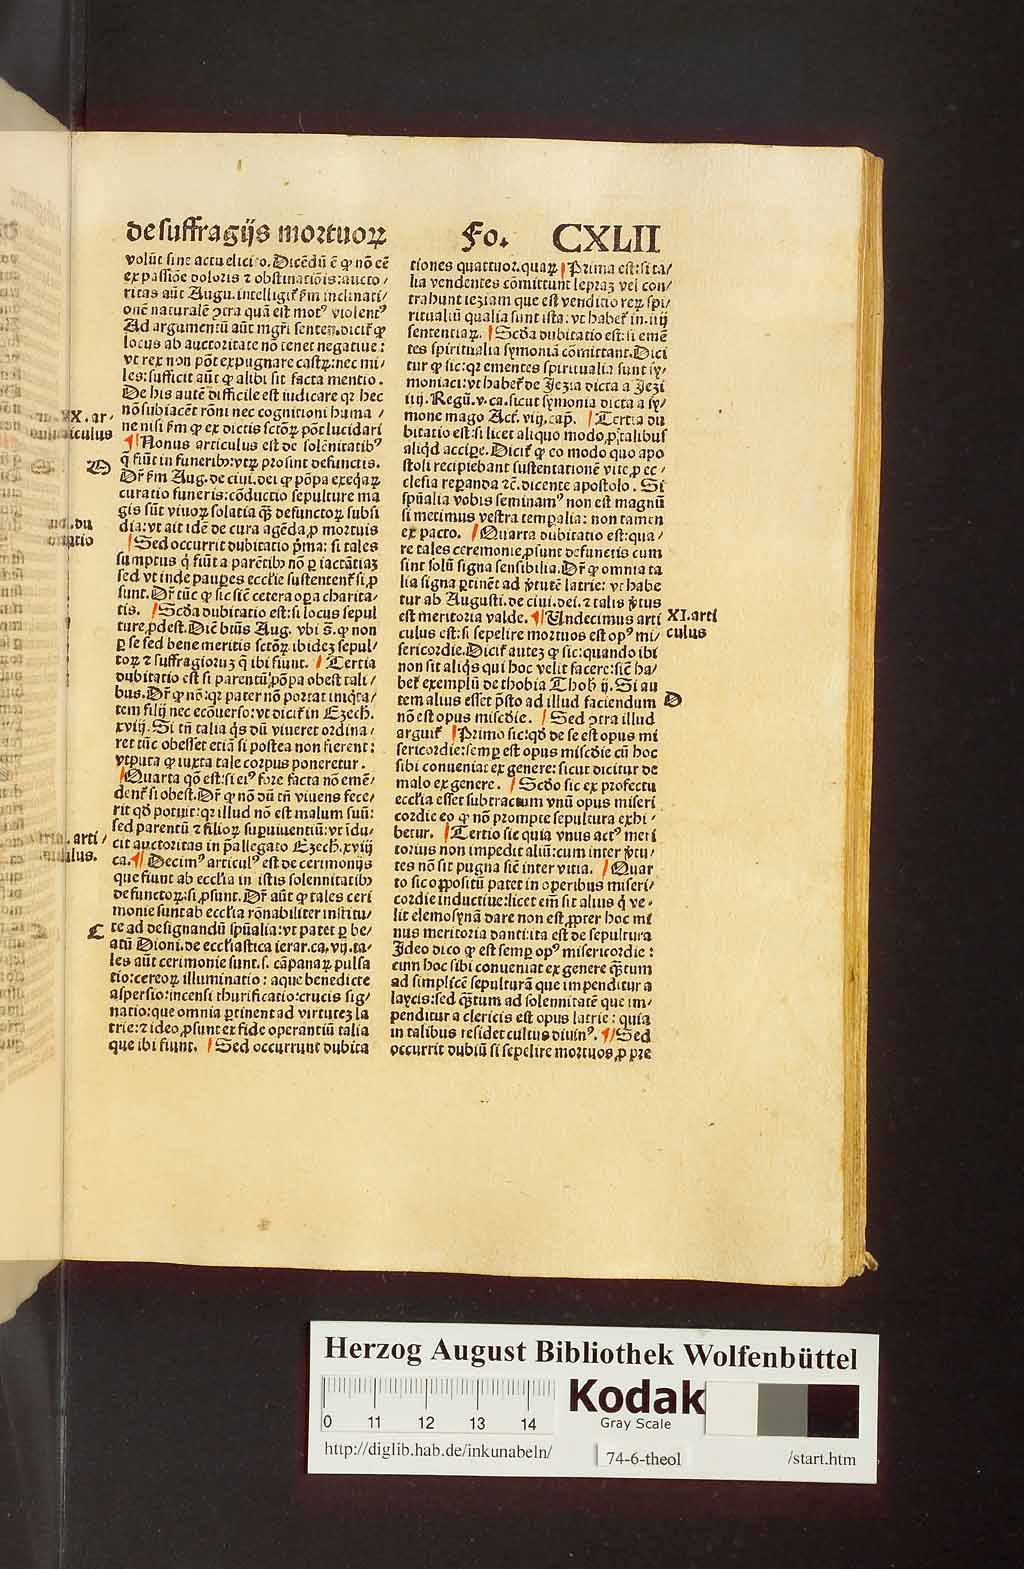 de suffragijs mortuoꝝ
Fo. CXLII
volūt sine actu elicito. Dicēdū ē ꝙ nō cē
ex passiōe doloris ⁊ obstinatiōis: aucto/
ritas aūt Augu. intelligit᷑ ẜm inclinati/
onē naturalē ꝯtra quā est motꝰ violentꝰ
Ad argumentū aūt mgr̄i senten. dicit᷑ ꝙ
locus ab auctoritate nō tenet negatiue:
vt rex non pōt expugnare castꝝ: nec mi/
les: sufficit aūt ꝙ alibi sit facta mentio.
De his autē difficile est iudicare qꝛ hec
nō subiacēt rōni nec cognitioni huma/
ne nisi ẜm ꝙ ex dictis sctōꝝ pōt lucidari
¶ Nonus articulus est de solēnitatibꝰ
q̄ fiūt in funeribꝰ: vtꝝ prosint defunctis.
Dr̄ ẜm Aug. de ciui. dei ꝙ pōpa exeq̄aꝝ
curatio funeris: cōductio sepulture ma
gis sūt viuoꝝ solatia qȝ defunctoꝝ subsi
dia: vt ait idē de cura agēda ꝓ mortuis
Sed occurrit dubitatio p̄ma: si tales
sumptus q̇ fiūt a parētibꝰ nō ꝑ iactātiaȝ
sed vt inde pauꝑes eccl̄ie sustentent᷑ si ꝓ
sunt. Dr̄ tūc ꝙ sic siē cetera oꝑa charita/
tis. Scd̄a dubitatio est: si locus sepul
ture ꝓdest. Dic̄ btūs Aug. vbi s̄. ꝙ non
ꝑ se sed bene meritis sctōꝝ ibidēȝ sepul/
toꝝ ⁊ suffragioruȝ q̄ ibi fiunt. Tertia
dubitatio est si parentū pōpa obest tali/
bus. Dr̄ ꝙ nō: qꝛ pater nō portat iniq̇ta/
tem filij nec ecōuerso: vt dicit᷑ in Ezech.
xviij. Si tn̄ talia q̇s dū viueret ordina/
ret tūc obesset etiā si postea non fierent:
vtputa ꝙ iuxta tale corpus poneretur.
Quarta qō est: si eiꝰ fore facta nō emē/
dent᷑ si obest. Dr̄ ꝙ nō dū tn̄ viuens fece/
rit qd̄ potuit: qꝛ illud nō est malum suū:
sed parentū ⁊ filioꝝ suꝑuiuentiū: vt īdu/
cit auctoritas in p̄allegato Ezech. xviij
ca. ¶ Decimꝰ articulꝰ est de cerimonijs
que fiunt ab eccl̄ia in istis solennitatibꝰ
defunctoꝝ: si ꝓsunt. Dr̄ aūt ꝙ tales ceri
monie sunt ab eccl̄ia rōnabiliter institu/
te ad designandū sp̄ualia: vt patet ꝑ be/
atū Dioni. de eccl̄iastica ierar. ca. vij. ta/
les aūt cerimonie sunt. s. cāpanaꝝ pulsa
tio: cereoꝝ illuminatio: aque benedicte
aspersio: incensi thurificatio: crucis sig/
natio: que omnia ꝑtinent ad virtuteȝ la
trie: ⁊ ideo ꝓsunt ex fide operantiū talia
que ibi fiunt. Sed occurrunt dubita
tiones quattuor. quaꝝ Prima est: si ta/
lia vendentes cōmittunt lepraȝ vel con/
trahunt ieziam que est venditio reꝝ spi/
ritualiū qualia sunt ista: vt habet᷑ in. iiij
sententiaꝝ. Scd̄a dubitatio est: si emē
tes spiritualia symoniā cōmittant. Dici
tur ꝙ sic: qꝛ ementes spiritualia sunt sy/
moniaci: vt habet᷑ de Jezia dicta a Jezi
iiij. Regū. v. ca. sicut symonia dicta a sy/
mone mago Act. viij. cap̄. Tertia du
bitatio est: si licet aliquo modo ꝓ talibus
aliq̇d accipe. Dicit᷑ ꝙ eo modo quo apo
stoli recipiebant sustentationē vite ꝑ ec/
clesia reꝑanda ⁊c̄. dicente apostolo. Si
sp̄ualia vobis seminamꝰ non est magnū
si metimus vestra temꝑalia: non tamen
ex pacto. Quarta dubitatio est: qua/
re tales ceremonie ꝓsunt defunctis cum
sint solū signa sensibilia. Dr̄ ꝙ omnia ta
lia signa ꝑtinēt ad v̓tutē latrie: vt habe
tur ab Augusti. de ciui. dei. ⁊ talis v̓tus
est meritoria valde. ¶ Undecimus arti
culus est: si sepelire mortuos est opꝰ mi/
sericordie. Dicit᷑ auteȝ ꝙ sic: quando ibi
non sit aliq̇s qui hoc velit facere: siē ha/
bet᷑ exemplū de thobia Thob ij. Si au
tem alius esset p̄sto ad illud faciendum
nō est opus miscd̄ie. Sed ꝯtra illud
arguit᷑ Primo sic: qd̄ de se est opus mi
sericordie: semꝑ est opus miscd̄ie cū hoc
sibi conueniat ex genere: sicut dicitur de
malo ex genere. Scd̄o sic ex profectu
eccl̄ia esset subtractum vnū opus miseri
cordie eo ꝙ nō prompte sepultura exhi/
betur. Tertio sic quia vnus actꝰ meri
torius non impedit aliū: cum inter v̓tu/
tes nō sit pugna siē inter vitia. Quar
to sic oppositū patet in operibus miseri/
cordie inductiue: licet em̄ sit alius q̇ ve/
lit elemosynā dare non est ꝓpter hoc mi
nus meritoria danti: ita est de sepultura
Ideo dico ꝙ est semꝑ opꝰ misericordie:
cum hoc sibi conueniat ex genere qȝtum
ad simplicē sepulturā que impenditur a
laycis: sed qȝtum ad solennitatē que im/
penditur a clericis est opus latrie: quia
in talibus residet cultus diuinꝰ. ¶ Sed
occurrit dubiū si sepelire mortuos ꝓ pre
XI. arti
culus
D
Herzog August Bibliothek Wolfenbüttel
Kodak
Gray Scale
0 11 12 13 14
http://diglib.hab.de/inkunabeln/
74-6-theol
/start.htm